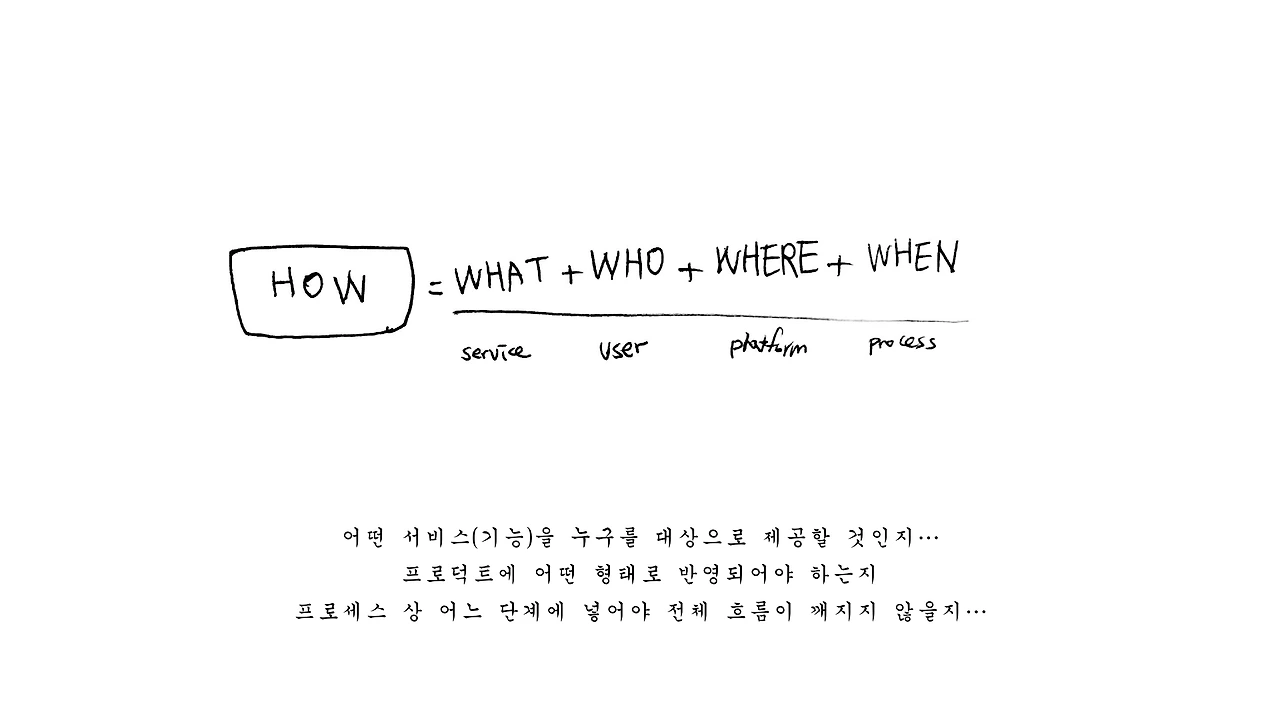 HOW = WHAT + WHO + WHERE + WHEN
service user platform process
어떤 서비스(기능)을 누구를 대상으로 제공할 것인지…
프로덕트에 어떤 형태로 반영되어야 하는지
프로세스 상 어느 단계에 넣어야 전체 흐름이 깨지지 않을지…